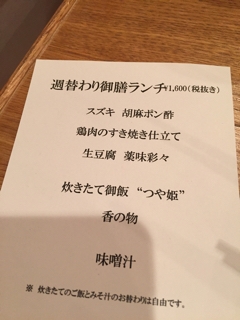 週替わり御膳ランチ¥1,600(税抜き)
スズキ 胡麻ポン酢
鶏肉のすき焼き仕立て
生豆腐 薬味彩々
炊きたて御飯 “つや姫”
香の物
味噌汁
※ 炊きたてのご飯とみそ汁のお替わりは自由です。